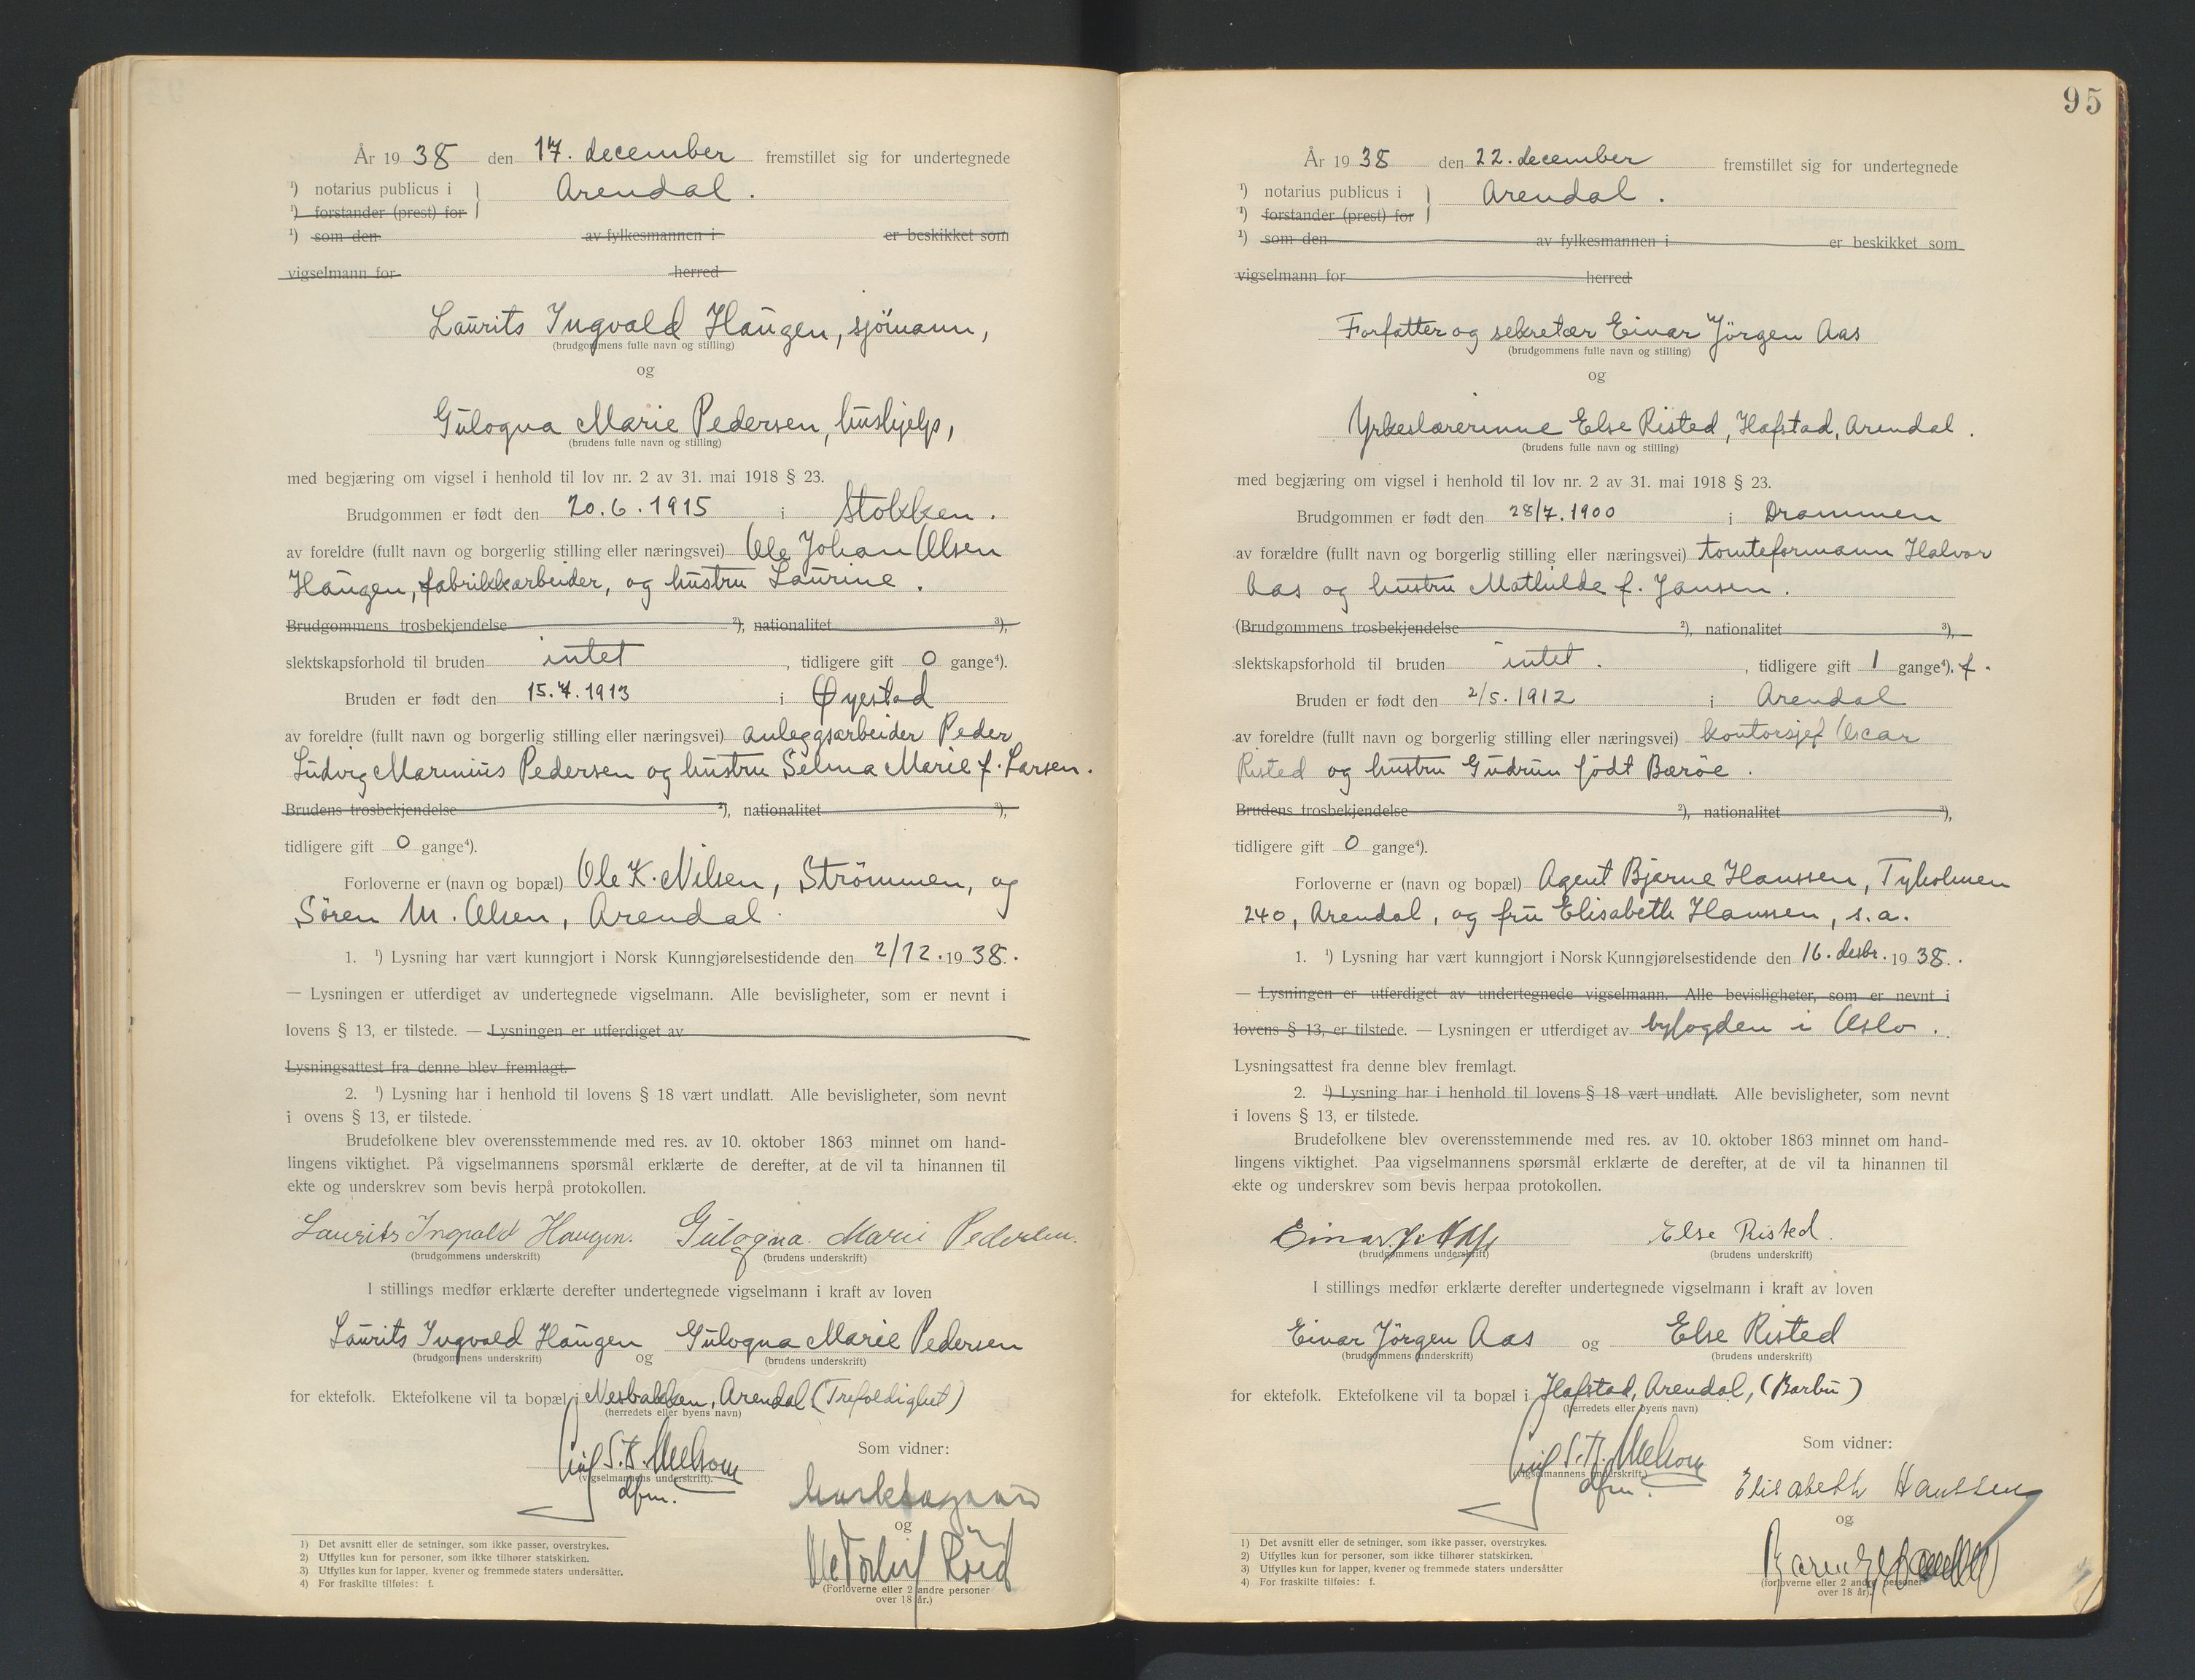 År 19 38 den 17. december fremstillet sig for undertegnede
¹) notarius publicus i } Arendal .
¹) forstander (prest) for
¹) som den av fylkesmannen i er beskikket som
vigselmann for herred
Laurits Ingvald Haugen, sjömann,
(brudgommens fulle navn og stilling)
og
Gulogna Marie Pedersen, hushjelp,
(brudens fulle navn og stilling)
med begjæring om vigsel i henhold til lov nr. 2 av 31. mai 1918 § 23.
Brudgommen er født den 20.6.1915 i Stokken.
av foreldre (fullt navn og borgerlig stilling eller næringsvei) Ole Johan Olsen
Haugen, fabrikkarbeider, og hustru Laurine.
Brudgommens trosbekjendelse ²), nationalitet ³),
slektskapsforhold til bruden intet , tidligere gift 0 gange⁴).
Bruden er født den 15.7.1913 i Øyestad
av foreldre (fullt navn og borgerlig stilling eller næringsvei) anleggsarbeider Peder
Ludvig Marinius Pedersen og hustru Selma Marie f. Larsen.
Brudens trosbekjendelse ²), nationalitet ³),
tidligere gift 0 gange⁴).
Forloverne er (navn og bopæl) Ole K. Nilsen, Strömmen, og
Sören M. Olsen, Arendal.
1. ¹) Lysning har vært kunngjort i Norsk Kunngjørelsestidende den 2/12. 19 38. .
— Lysningen er utferdiget av undertegnede vigselmann. Alle bevisligheter, som er nevnt i
lovens § 13, er tilstede. — Lysningen er utferdiget av
Lysningsattest fra denne blev fremlagt.
2. ¹) Lysning har i henhold til lovens § 18 vært undlatt. Alle bevisligheter, som nevnt
i ovens § 13, er tilstede.
Brudefolkene blev overensstemmende med res. av 10. oktober 1863 minnet om hand-
lingens viktighet. På vigselmannens spørsmål erklærte de derefter, at de vil ta hinannen til
ekte og underskrev som bevis herpå protokollen.
Laurits Ingvald Haugen. Gulogna Marie Pedersen.
(brudgommens underskrift) (brudens underskrift)
I stillings medfør erklærte derefter undertegnede vigselmann i kraft av loven
Laurits Ingvald Haugen og Gulogna Marie Pedersen
(brudgommens underskrift) (brudens underskrift)
for ektefolk. Ektefolkene vil ta bopæl i Nesbakken, Arendal (Trefoldighet)
(herredets eller byens navn)
Som vidner:
(vigselmannens underskrift).
dfm.
og
(Forloverne eller 2 andre personer
over 18 år.)
1) Det avsnitt eller de setninger, som ikke passer, overstrykes.
2) Utfylles kun for personer, som ikke tilhører statskirken.
3) Utfylles kun for lapper, kvener og fremmede staters undersåtter.
4) For fraskilte tilføies: f.
95
År 19 38 den 22. december fremstillet sig for undertegnede
¹) notarius publicus i } Arendal .
¹) forstander (prest) for
¹) som den av fylkesmannen i er beskikket som
vigselmann for herred
Forfatter og sekretær Einar Jörgen Aas
(brudgommens fulle navn og stilling)
og
Yrkeslærerinne Else Risted, Hafstad, Arendal.
(brudens fulle navn og stilling)
med begjæring om vigsel i henhold til lov nr. 2 av 31. mai 1918 § 23.
Brudgommen er født den 28/7.1900 i Drammen
av forældre (fullt navn og borgerlig stilling eller næringsvei) tomteformann Halvor
Aas og hustru Mathilde f. Jansen.
(Brudgommens trosbekjendelse ²), nationalitet ³),
slektskapsforhold til bruden intet. , tidligere gift 1 gange⁴). f.
Bruden er født den 2/5.1912 i Arendal
av foreldre (fullt navn og borgerlig stilling eller næringsvei) kontorsjef Oscar
Risted og hustru Gudrun født Bærøe.
Brudens trosbekjendelse ²), nationalitet ³),
tidligere gift 0 gange⁴).
Forloverne er (navn og bopæl) Agent Bjarne Hanssen, Tyholmen
240, Arendal, og fru Elisabeth Hanssen, s.a.
1. ¹) Lysning har vært kunngjort i Norsk Kunngjørelsestidende den 16. desbr. 19 38. .
— Lysningen er utferdiget av undertegnede vigselmann. Alle bevisligheter, som er nevnt i
lovens § 13, er tilstede. — Lysningen er utferdiget av byfogden i Oslo.
Lysningsattest fra denne blev fremlagt.
2. ¹) Lysning har i henhold til lovens § 18 vært undlatt. Alle bevisligheter, som nevnt
i lovens § 13, er tilstede.
Brudefolkene blev overensstemmende med res. av 10. oktober 1863 minnet om hand-
lingens viktighet. Paa vigselmannens spørsmål erklærte de derefter, at de vil ta hinannen til
ekte og underskrev som bevis herpaa protokollen.
Einar J. Aas Else Risted
(brudgommens underskrift) (brudens underskrift)
I stillings medfør erklærte derefter undertegnede vigselmann i kraft av loven
Einar Jörgen Aas og Else Risted
(brudgommens underskrift) (brudens underskrift)
for ektefolk. Ektefolkene vil ta bopæl i Hafstad, Arendal, (Barbu)
(herredets eller byens navn)
Som vidner:
(vigselmannens underskrift.)
dfm.
Elisabeth Hanssen
og
(forloverne eller 2 andre personer
over 18 år).
1) Det avsnitt eller de setninger, som ikke passer, overstrykes.
2) Utfylles kun for personer, som ikke tilhører statskirken.
3) Utfylles kun for lapper, kvener og fremmede staters undersåtter
4) For fraskilte tilføies: f.